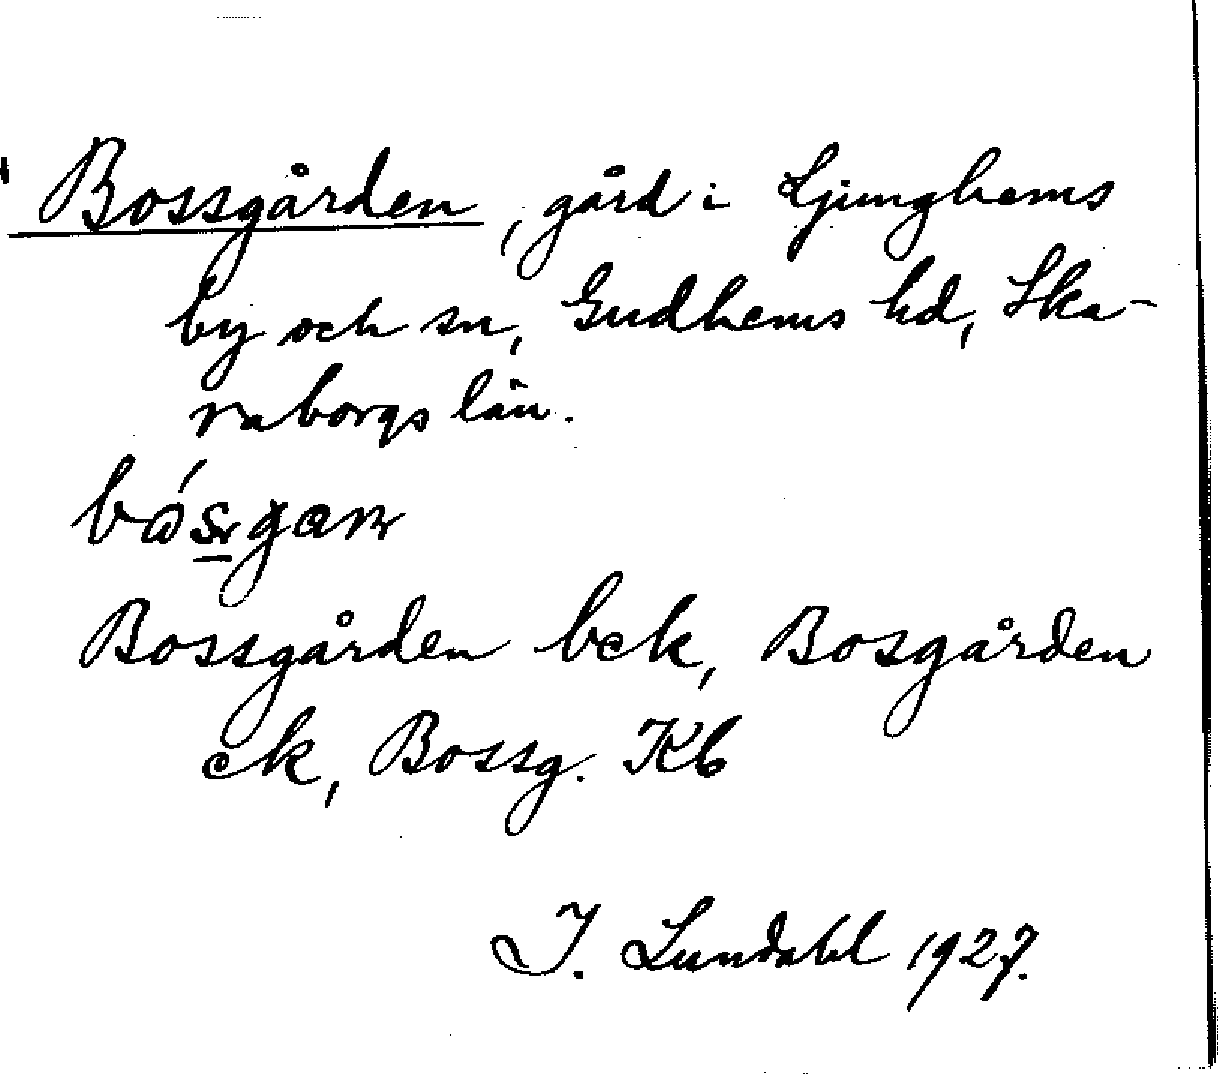 Bossgården, gård i Ljunghems
by och sn, Gudhems hd, Ska-
raborgs län.
Bossgården bck, Bosgården
ck, Bossg. Kb
I. Lundahl 1927.